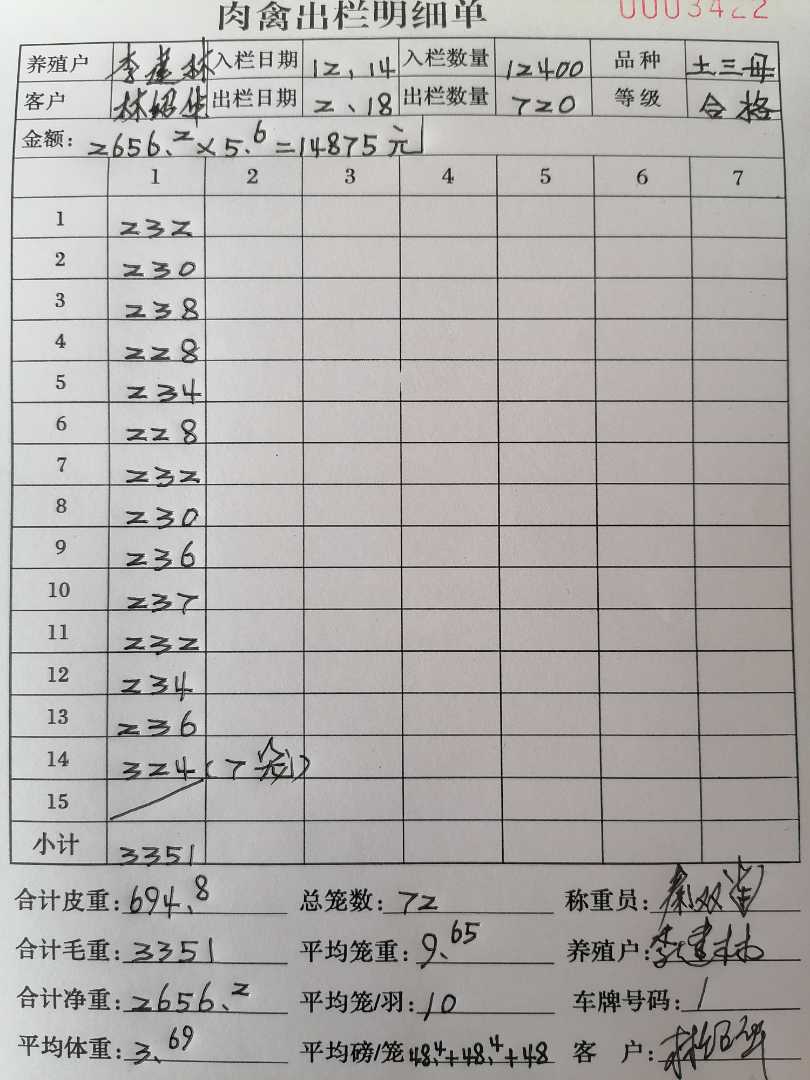 肉禽出栏明细单 0003422
养殖户 李建林 入栏日期 12、14 入栏数量 12400 品种 土三母
客户 林绍华 出栏日期 2、18 出栏数量 720 等级 合格
金额: 2656.2×5.6=14875元
1 2 3 4 5 6 7
1 232
2 230
3 238
4 228
5 234
6 228
7 232
8 230
9 236
10 237
11 232
12 234
13 236
14 324(7笼)
15
小计 3351
合计皮重: 694.8 总笼数: 72 称重员:
合计毛重: 3351 平均笼重: 9.65 养殖户: 李建林
合计净重: 2656.2 平均笼/羽: 10 车牌号码: /
平均体重: 3.69 平均磅/笼 48.4+48.4+48 客 户: